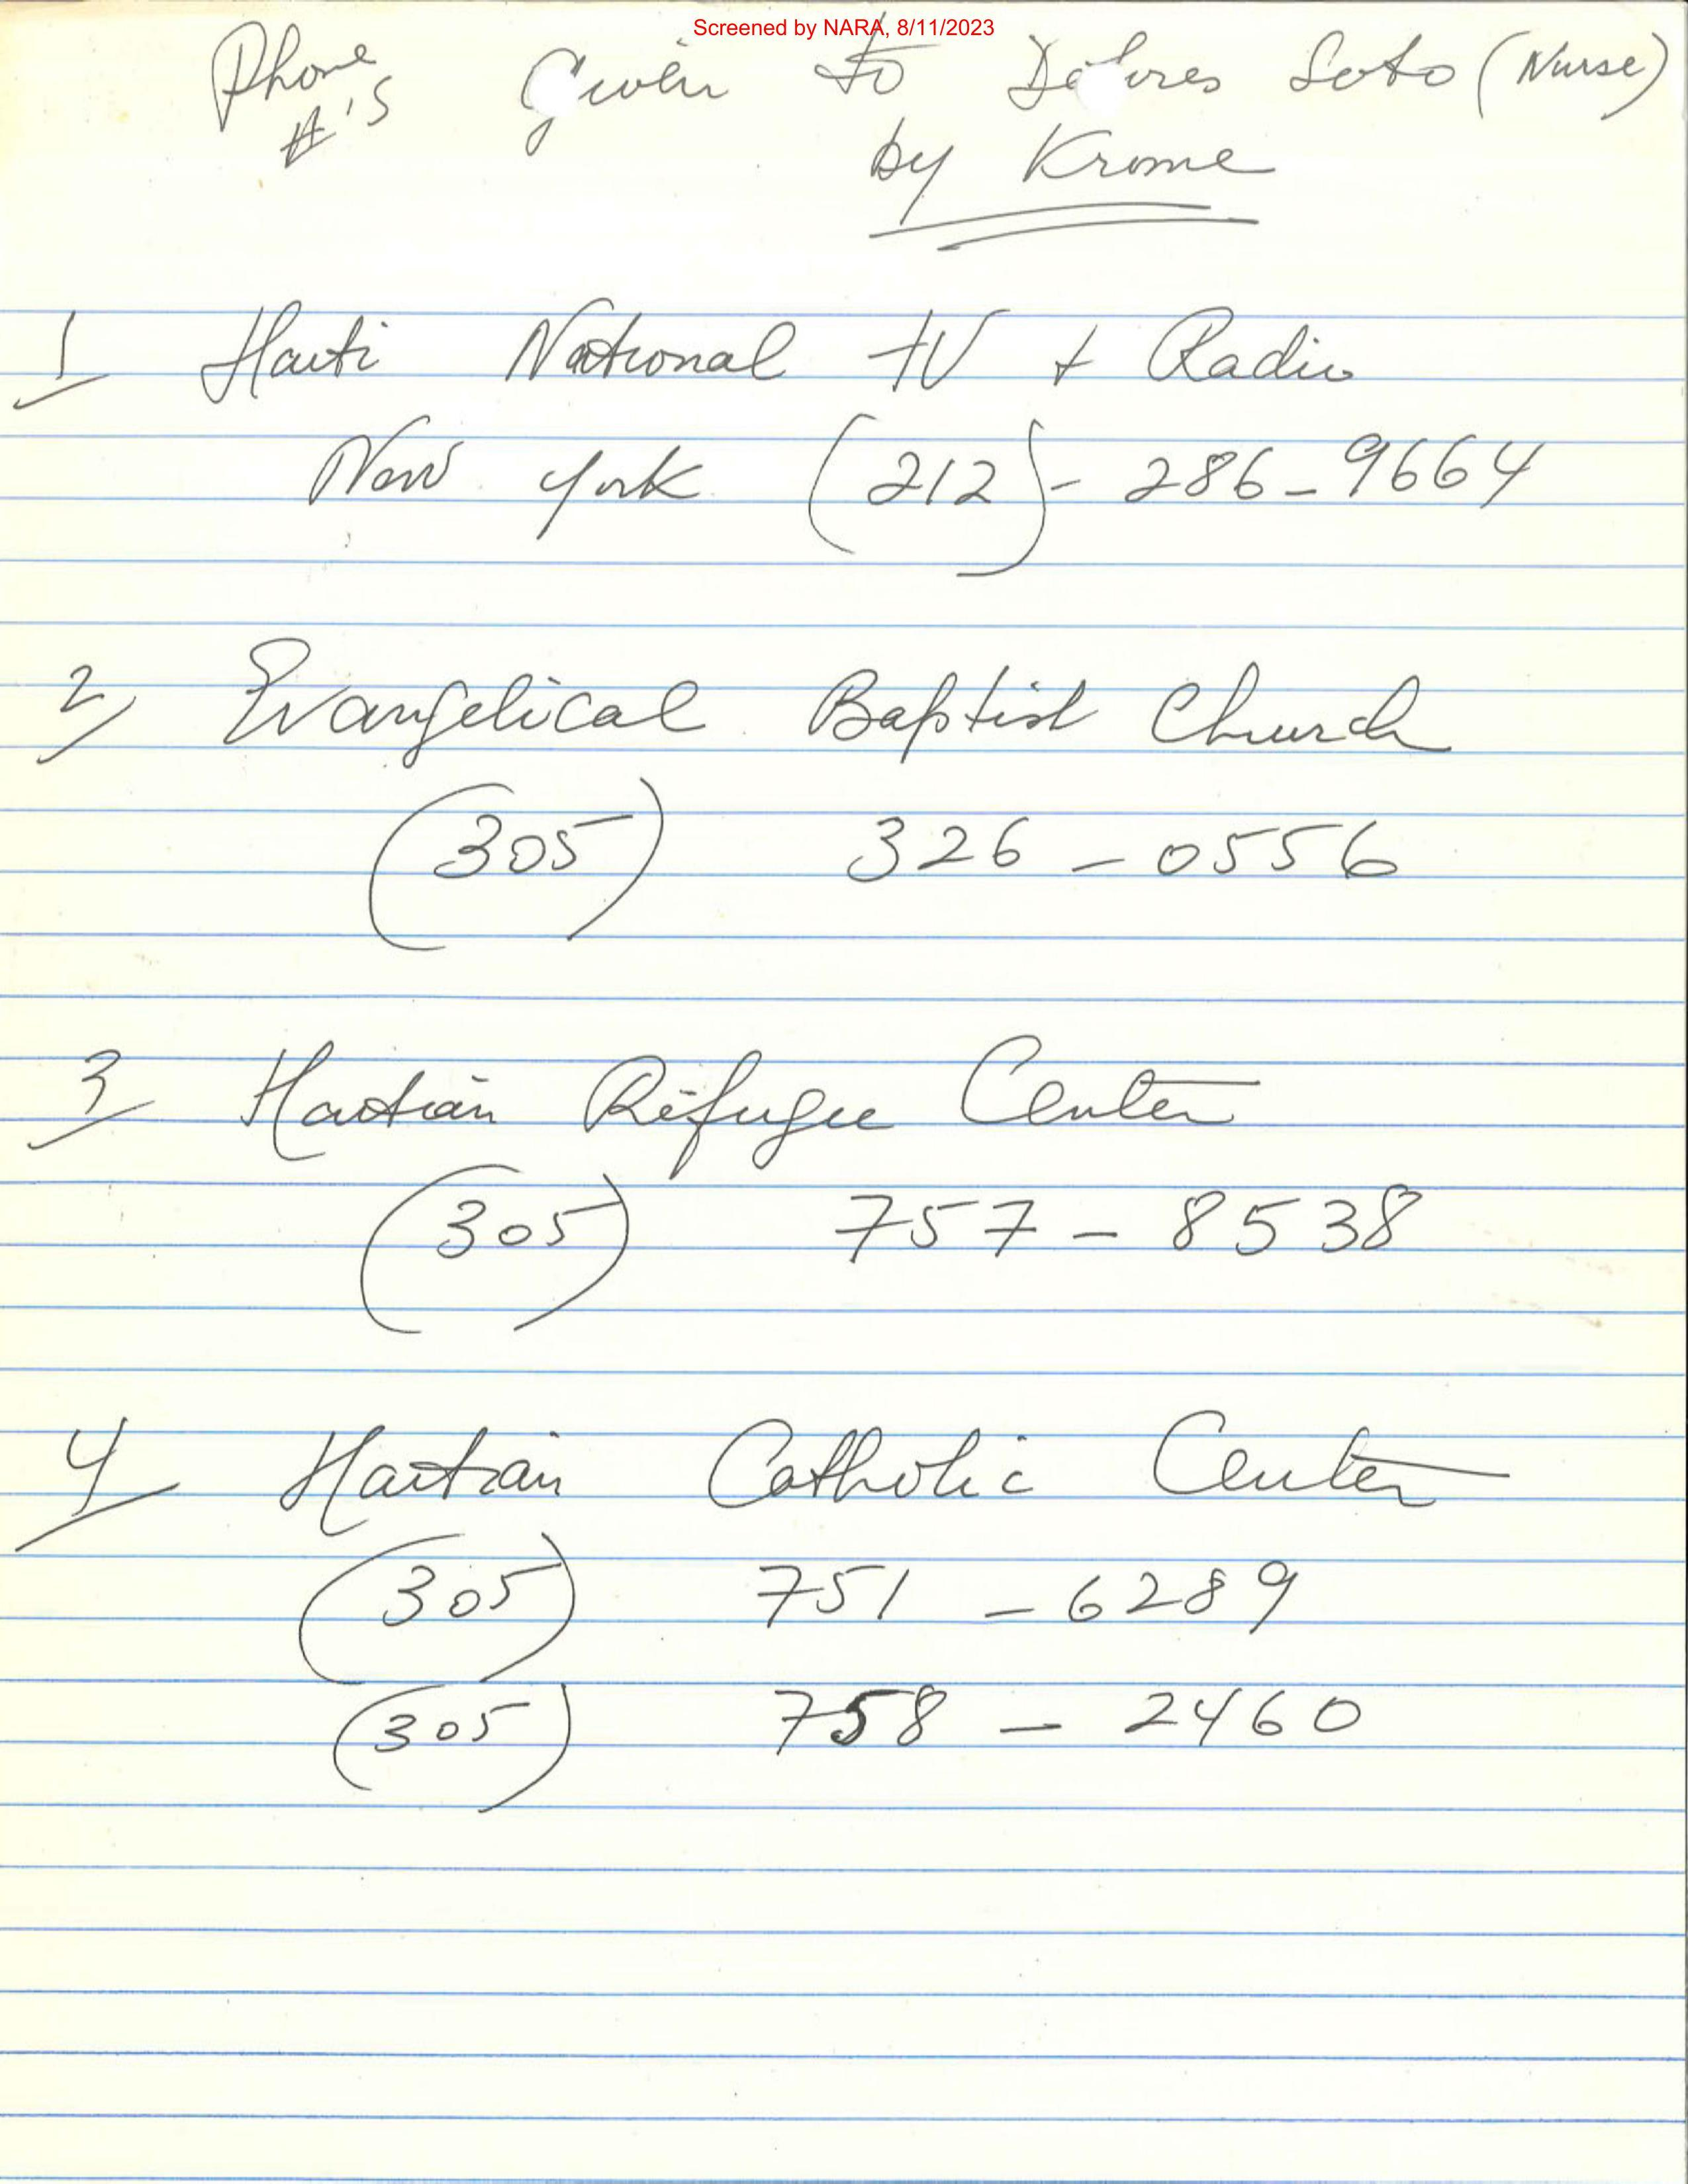 Screened by NARA, 8/11/2023
Phone #'s Given to Dolores Soto (Nurse)
by Krome
1 Haiti National TV + Radio
New York (212) - 286 - 9664
2 Evangelical Baptist Church
(305) 326 - 0556
3 Haitian Refugee Center
(305) 757 - 8538
4 Haitian Catholic Center
(305) 751 - 6289
(305) 758 - 2460